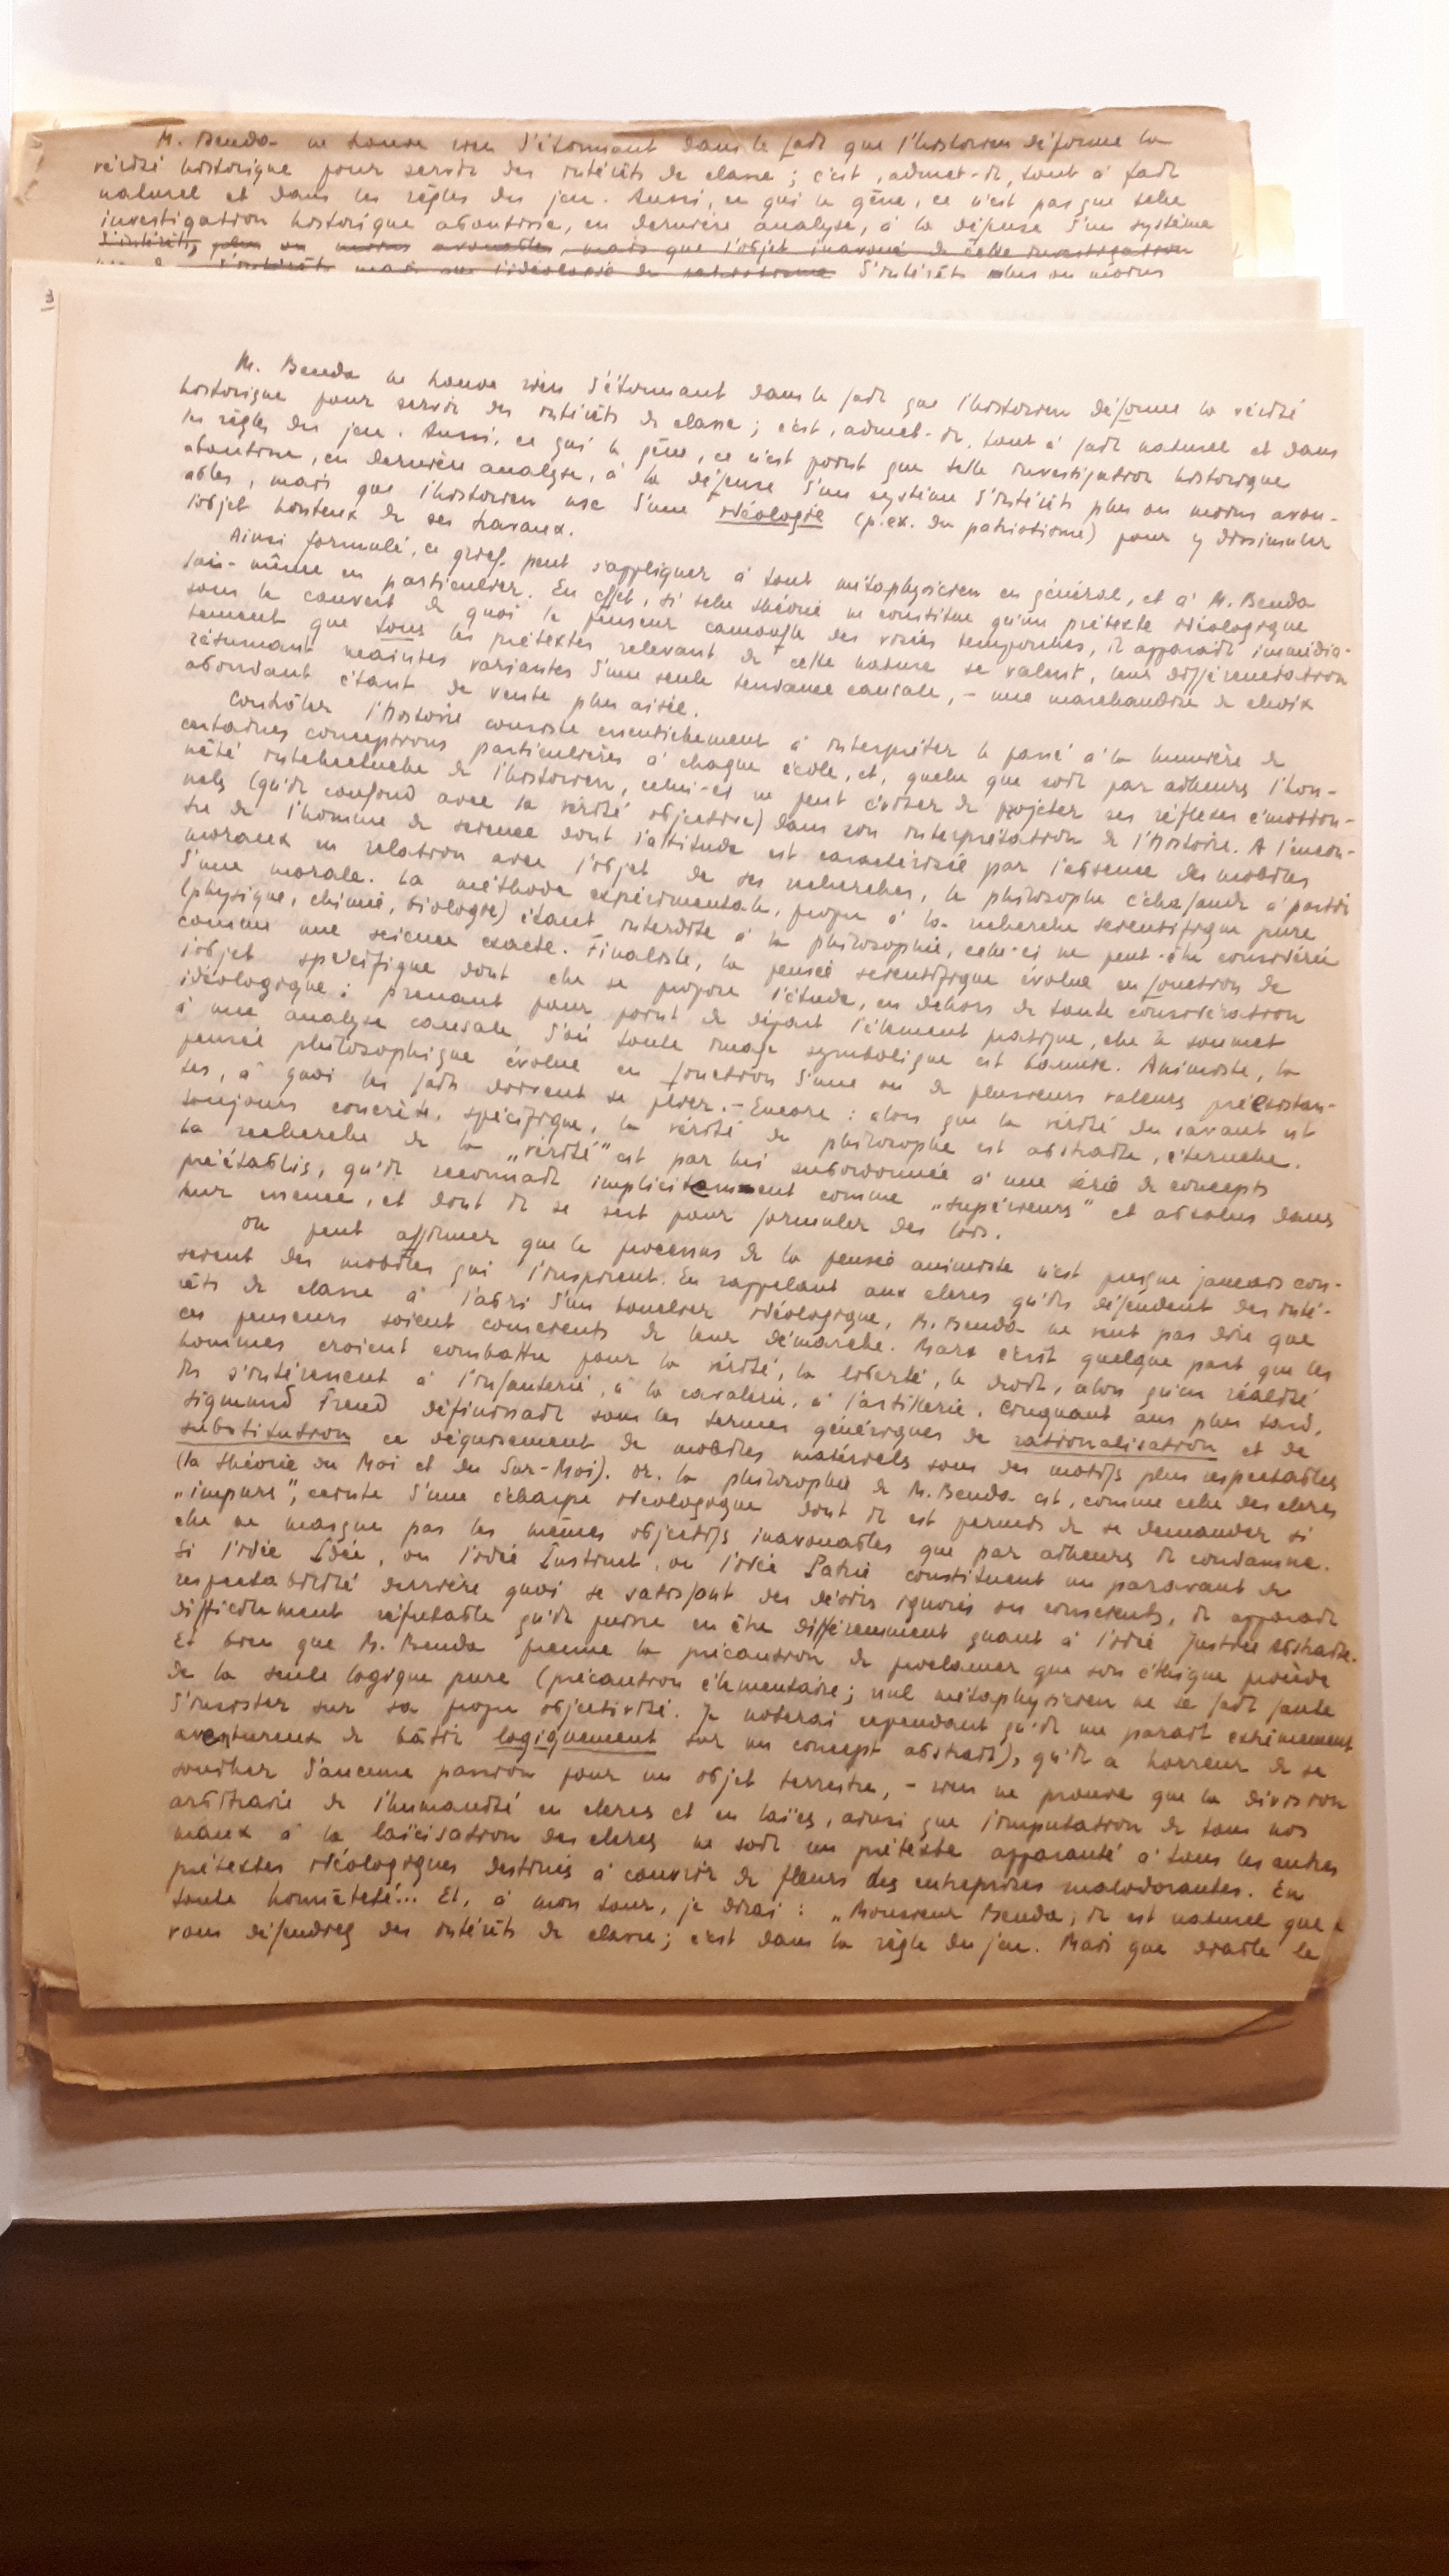 M. Benda ne trouve rien d'étonnant dans le fait que l'historien déforme la
vérité historique pour servir des intérêts de classe ; c'est, admet-il, tout à fait
naturel et dans les règles du jeu. Aussi, ce qui le gêne, ce n'est pas que telle
investigation historique aboutisse, en dernière analyse, à la défense d'un système
d'intérêts, plus ou moins avouables, mais que l'objet inavoué de cette investigation
d'intérêts mais que l'idéologie du d'intérêts plus ou moins
3
M. Benda ne trouve rien d'étonnant dans le fait que l'historien déforme la vérité
historique pour servir des intérêts de classe ; c'est, admet-il, tout à fait naturel et dans
les règles du jeu. Aussi, ce qui le gêne, ce n'est point que telle investigation historique
aboutisse, en dernière analyse, à la défense d'un système d'intérêts plus ou moins avou-
ables, mais que l'historien use d'une idéologie (p.ex. du patriotisme) pour y dissimuler
l'objet honteux de ses travaux.
Ainsi formulé, ce grief peut s'appliquer à tout métaphysicien en général, et à M. Benda
lui-même en particulier. En effet, si telle théorie ne constitue qu'un prétexte idéologique
sous le couvert de quoi le penseur camoufle des visées temporelles, il apparaît immédia-
tement que tous les prétextes relevant de cette nature se valent, leur différenciation
résumant maintes variantes d'une seule tendance causale, – une marchandise de choix
abondant étant de vente plus aisée.
Contrôler l'histoire consiste essentiellement à interpréter le passé à la lumière de
certaines conceptions particulières à chaque école, et, quelle que soit par ailleurs l'hon-
nêté intellectuelle de l'historien, celui-ci ne peut éviter de projeter ses réflexes émotion-
nels (qu'il confond avec la vérité objective) dans son interprétation de l'histoire. A l'incon-
tre de l'homme de science dont l'attitude est caractérisée par l'absence des mobiles
moraux en relation avec l'objet de ses recherches, le philosophe échafaude à partir
d'une morale. La méthode expérimentale, propre à la recherche scientifique pure
(physique, chimie, biologie) étant interdite à la philosophie, celle-ci ne peut être considérée
comme une science exacte. Finaliste, la pensée scientifique évolue en fonction de
l'objet spécifique dont elle se propose l'étude, en dehors de toute considération
idéologique : prenant pour point de départ l'élément pratique, elle le soumet
à une analyse causale d'où toute image symbolique est bannie. Animiste, la
pensée philosophique évolue en fonction d'une ou de plusieurs valeurs préexistan-
tes, à quoi les faits doivent se plier. – Encore : alors que la vérité du savant est
toujours concrète, spécifique, la vérité du philosophe est abstraite, éternelle.
La recherche de la „vérité" est par lui subordonnée à une série de concepts
préétablis, qu'il reconnaît implicitement comme „supérieurs" et absolus dans
leur essence, et dont il se sert pour formuler des lois.
On peut affirmer que le processus de la pensée animiste n'est presque jamais con-
scient des mobiles qui l'inspirent. En rappelant aux clercs qu'ils défendent des inté-
rêts de classe à l'abri d'un bouclier idéologique, M. Benda ne veut pas dire que
ces penseurs soient conscients de leur démarche. Marx écrit quelque part que les
hommes croient combattre pour la vérité, la liberté, le droit, alors qu'en réalité
ils s'intéressent à l'infanterie, à la cavalerie, à l'artillerie. Cinquant ans plus tard,
Sigmund Freud définissait sous les termes génériques de rationalisation et de
substitution ce déguisement de mobiles matériels sous des motifs plus respectables
(la théorie du Moi et du Sur-Moi). Or, la philosophie de M. Benda est, comme celle des clercs
„impurs", ceinte d'une écharpe idéologique dont il est permis de se demander si
elle ne masque pas les mêmes objectifs inavouables que par ailleurs il condamne.
Si l'idée Idée, ou l'idée Instinct, ou l'idée Patrie constituent un paravant de
respectabilité derrière quoi se satisfont des désirs ignorés ou conscients, il apparaît
difficilement réfutable qu'il puisse en être différemment quant à l'idée Justice abstraite.
Et bien que M. Benda prenne la précaution de proclamer que son éthique procède
de la seule logique pure (précaution élémentaire ; nul métaphysicien ne se fait faute
d'insister sur sa propre objectivité. Je noterai cependant qu'il me paraît extrêmement
aventureux de bâtir logiquement sur un concept abstrait), qu'il a horreur de se
souiller d'aucune passion pour un objet terrestre, – rien ne prouve que la division
arbitraire de l'humanité en clercs et en laïcs, ainsi que l'imputation de tous nos
maux à la laïcisation des clercs ne soit un prétexte apparanté à tous les autres
prétextes idéologiques destinés à couvrir de fleurs des entreprises malodorantes. En
toute honnêteté... Et, à mon tour, je dirai : „Monsieur Benda, il est naturel que
vous défendiez des intérêts de classe ; c'est dans la règle du jeu. Mais que diable le